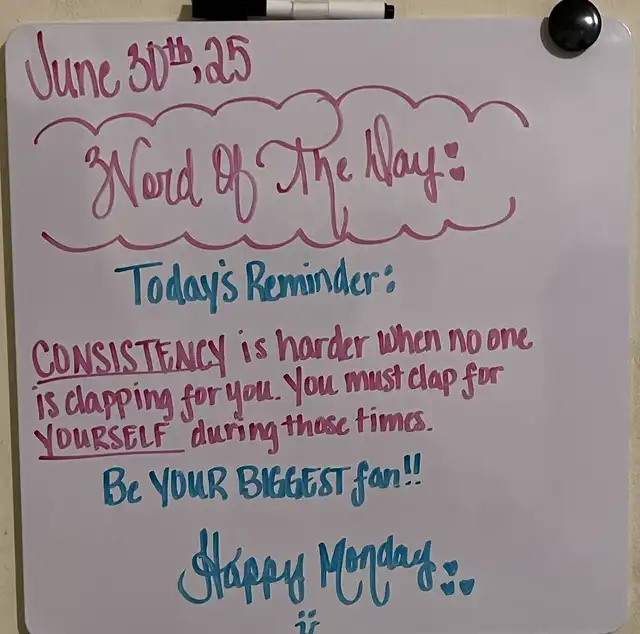 June 30th, 25
Word Of The Day:
Today's Reminder:
CONSISTENCY is harder when no one
is clapping for you. You must clap for
YOURSELF during those times.
Be YOUR BIGGEST fan!!
Happy Monday